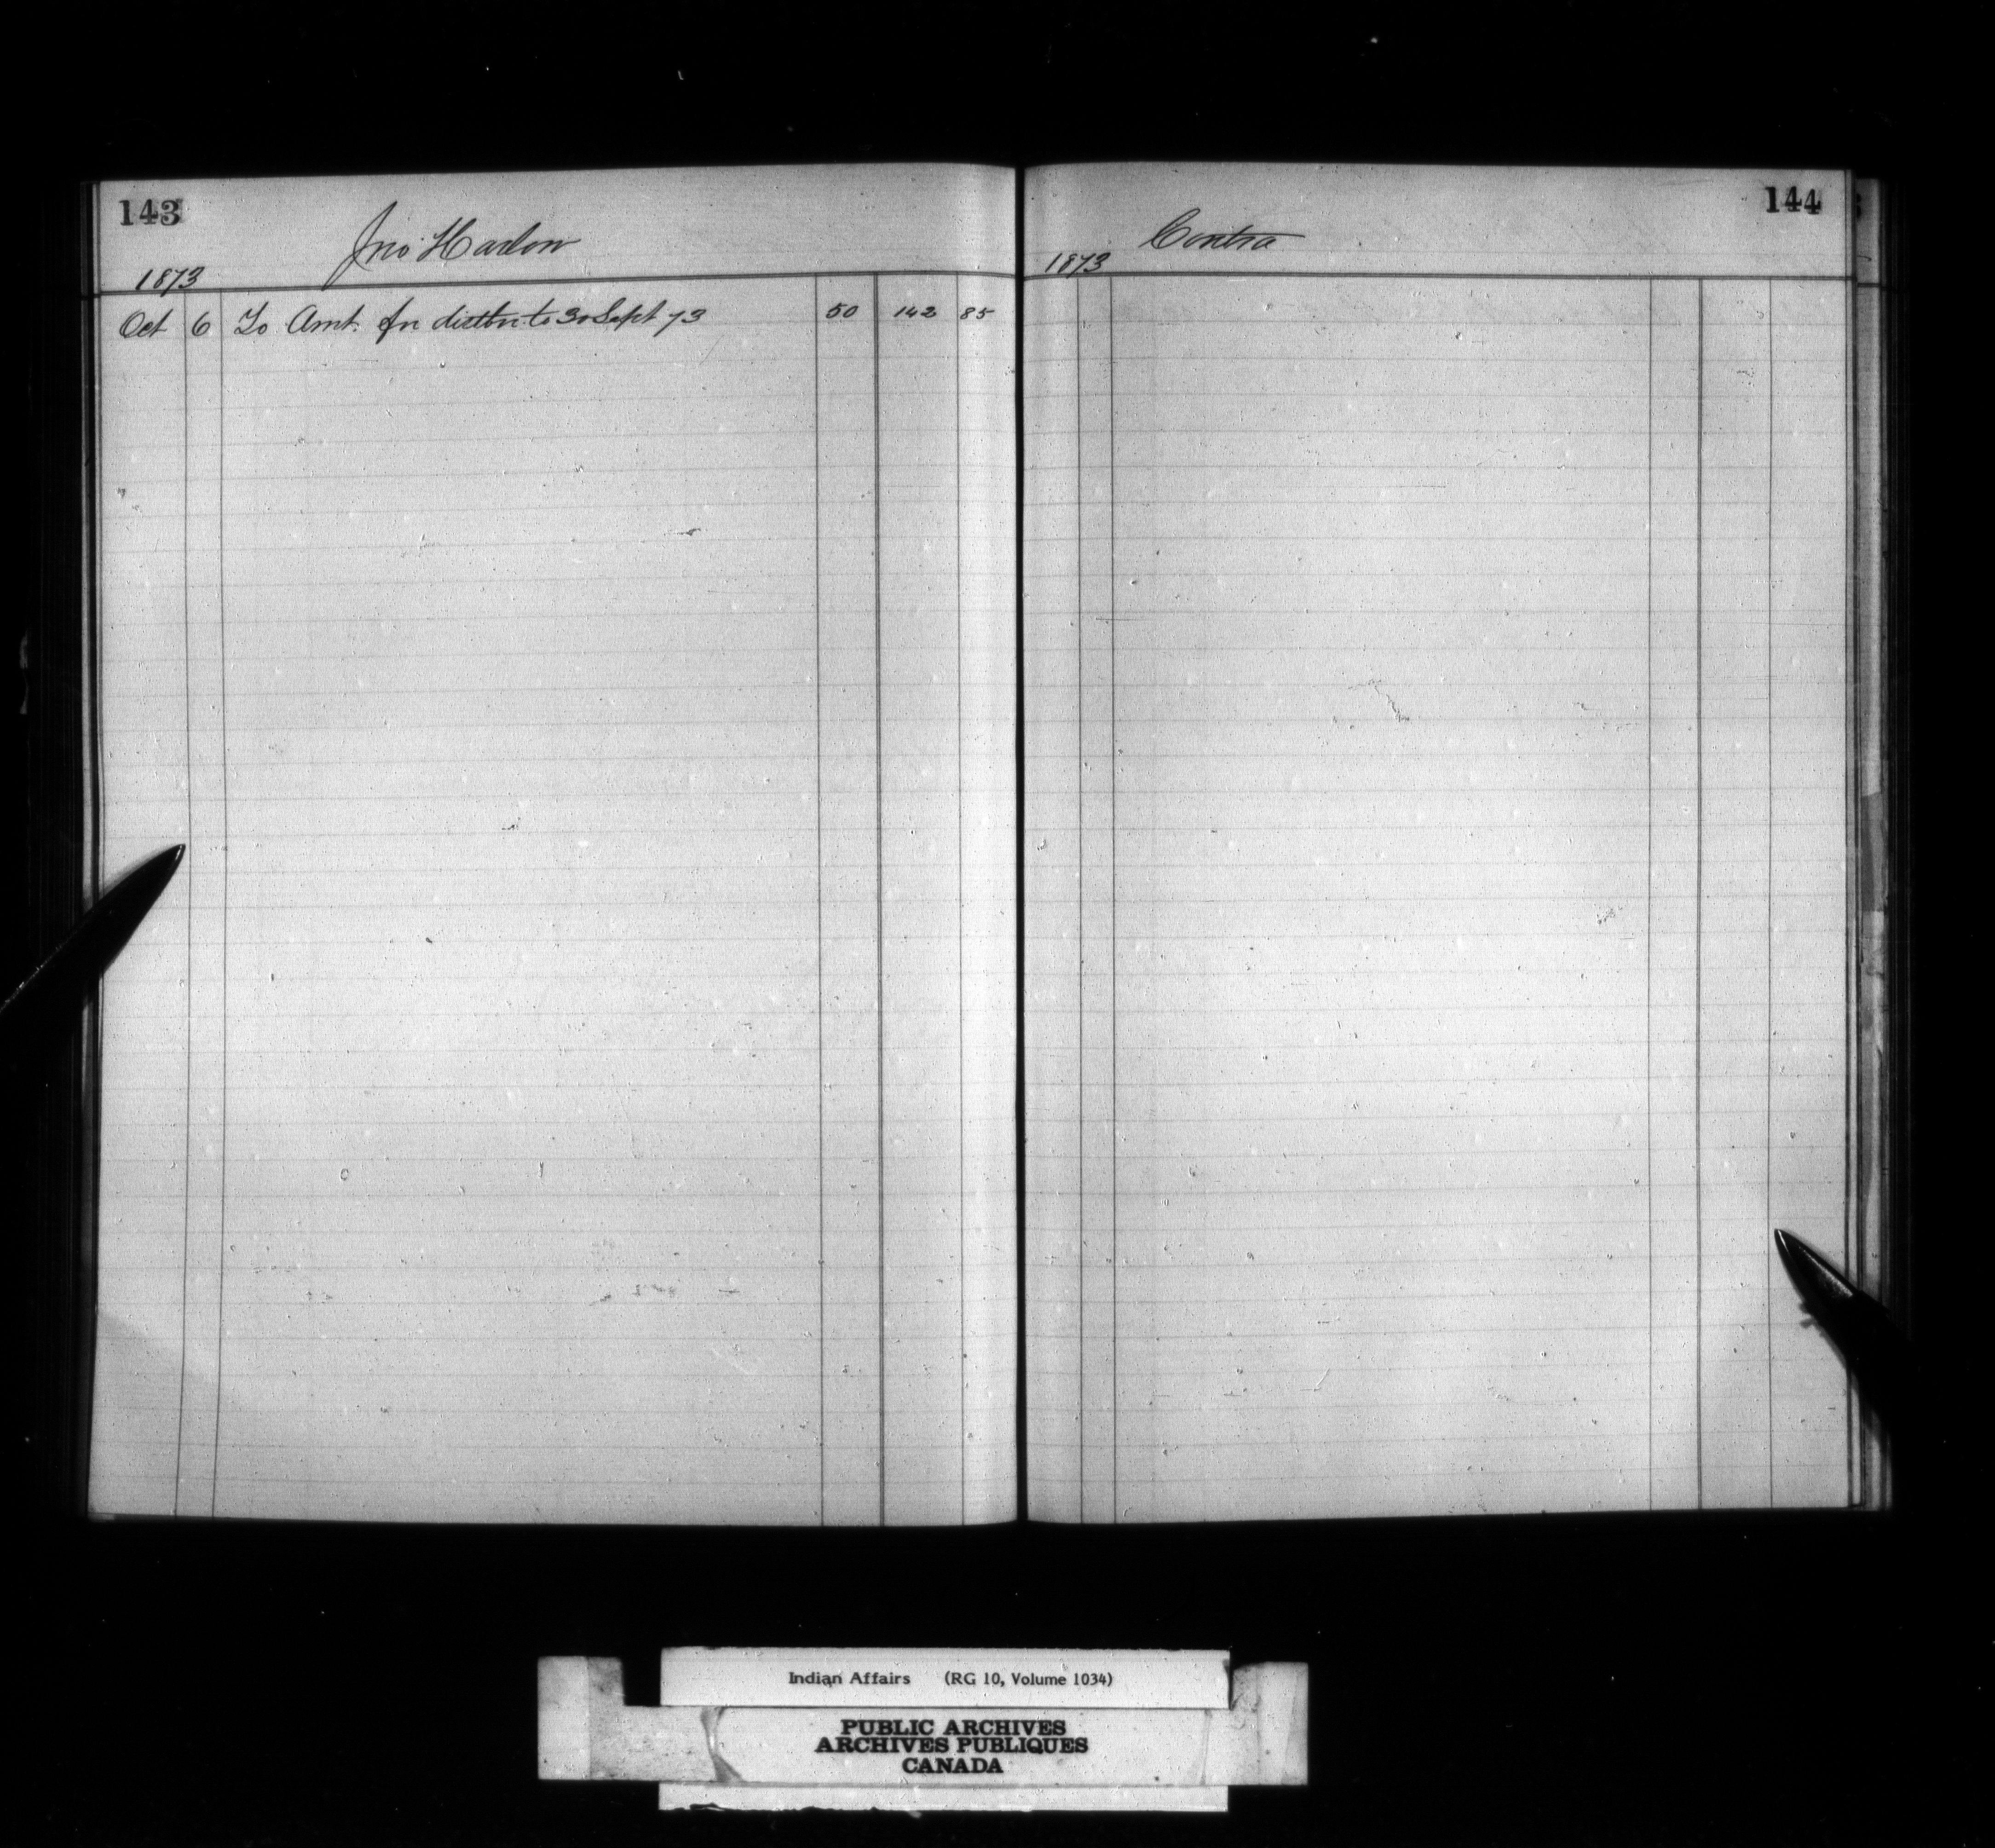 143
Jno Harlow
1873
Oct 6 To Amt. for distbn to 30 Sept 73 50 142 85
144
Contra
1873
Indian Affairs (RG 10, Volume 1034)
PUBLIC ARCHIVES
ARCHIVES PUBLIQUES
CANADA